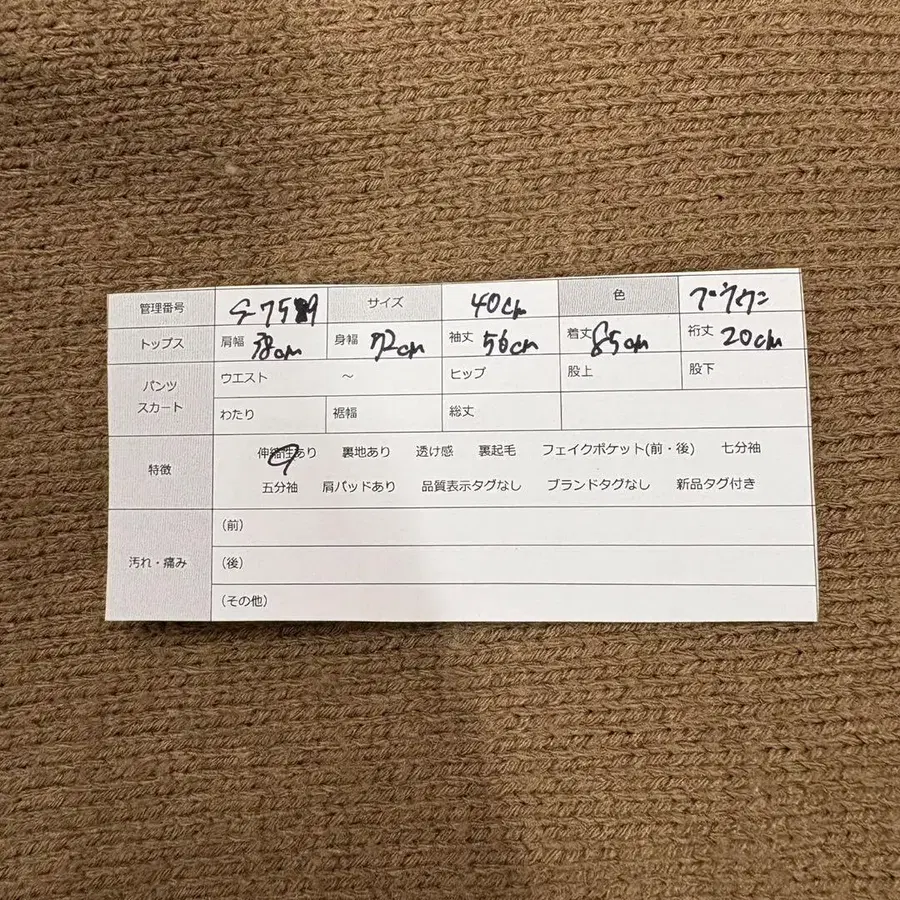 管理番号 サイズ 40cm 色 ブラウン
トップス 肩幅 38cm 身幅 72cm 袖丈 56cm 着丈 85cm 裄丈 20cm
パンツ スカート ウエスト ～ ヒップ 股上 股下
わたり 裾幅 総丈
特徴 伸縮性あり 裏地あり 透け感 裏起毛 フェイクポケット(前・後) 七分袖
五分袖 肩パッドあり 品質表示タグなし ブランドタグなし 新品タグ付き
汚れ・痛み (前)
(後)
(その他)